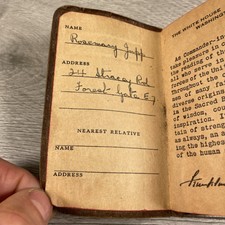 NAME
Rosemary Jiff
ADDRESS
24 Stracey Rd
Forest Gate E7
NEAREST RELATIVE
NAME
ADDRESS
THE WHITE HOUSE
WASHINGTON
As Commander-in
take pleasure in c
the reading of th
all who serve in
forces of the Unite
Throughout the c
men of many fa
diverse origins
in the Sacred B
of wisdom, coun
inspiration. I
tain of strength
as always, an a
ing the highest
of the human